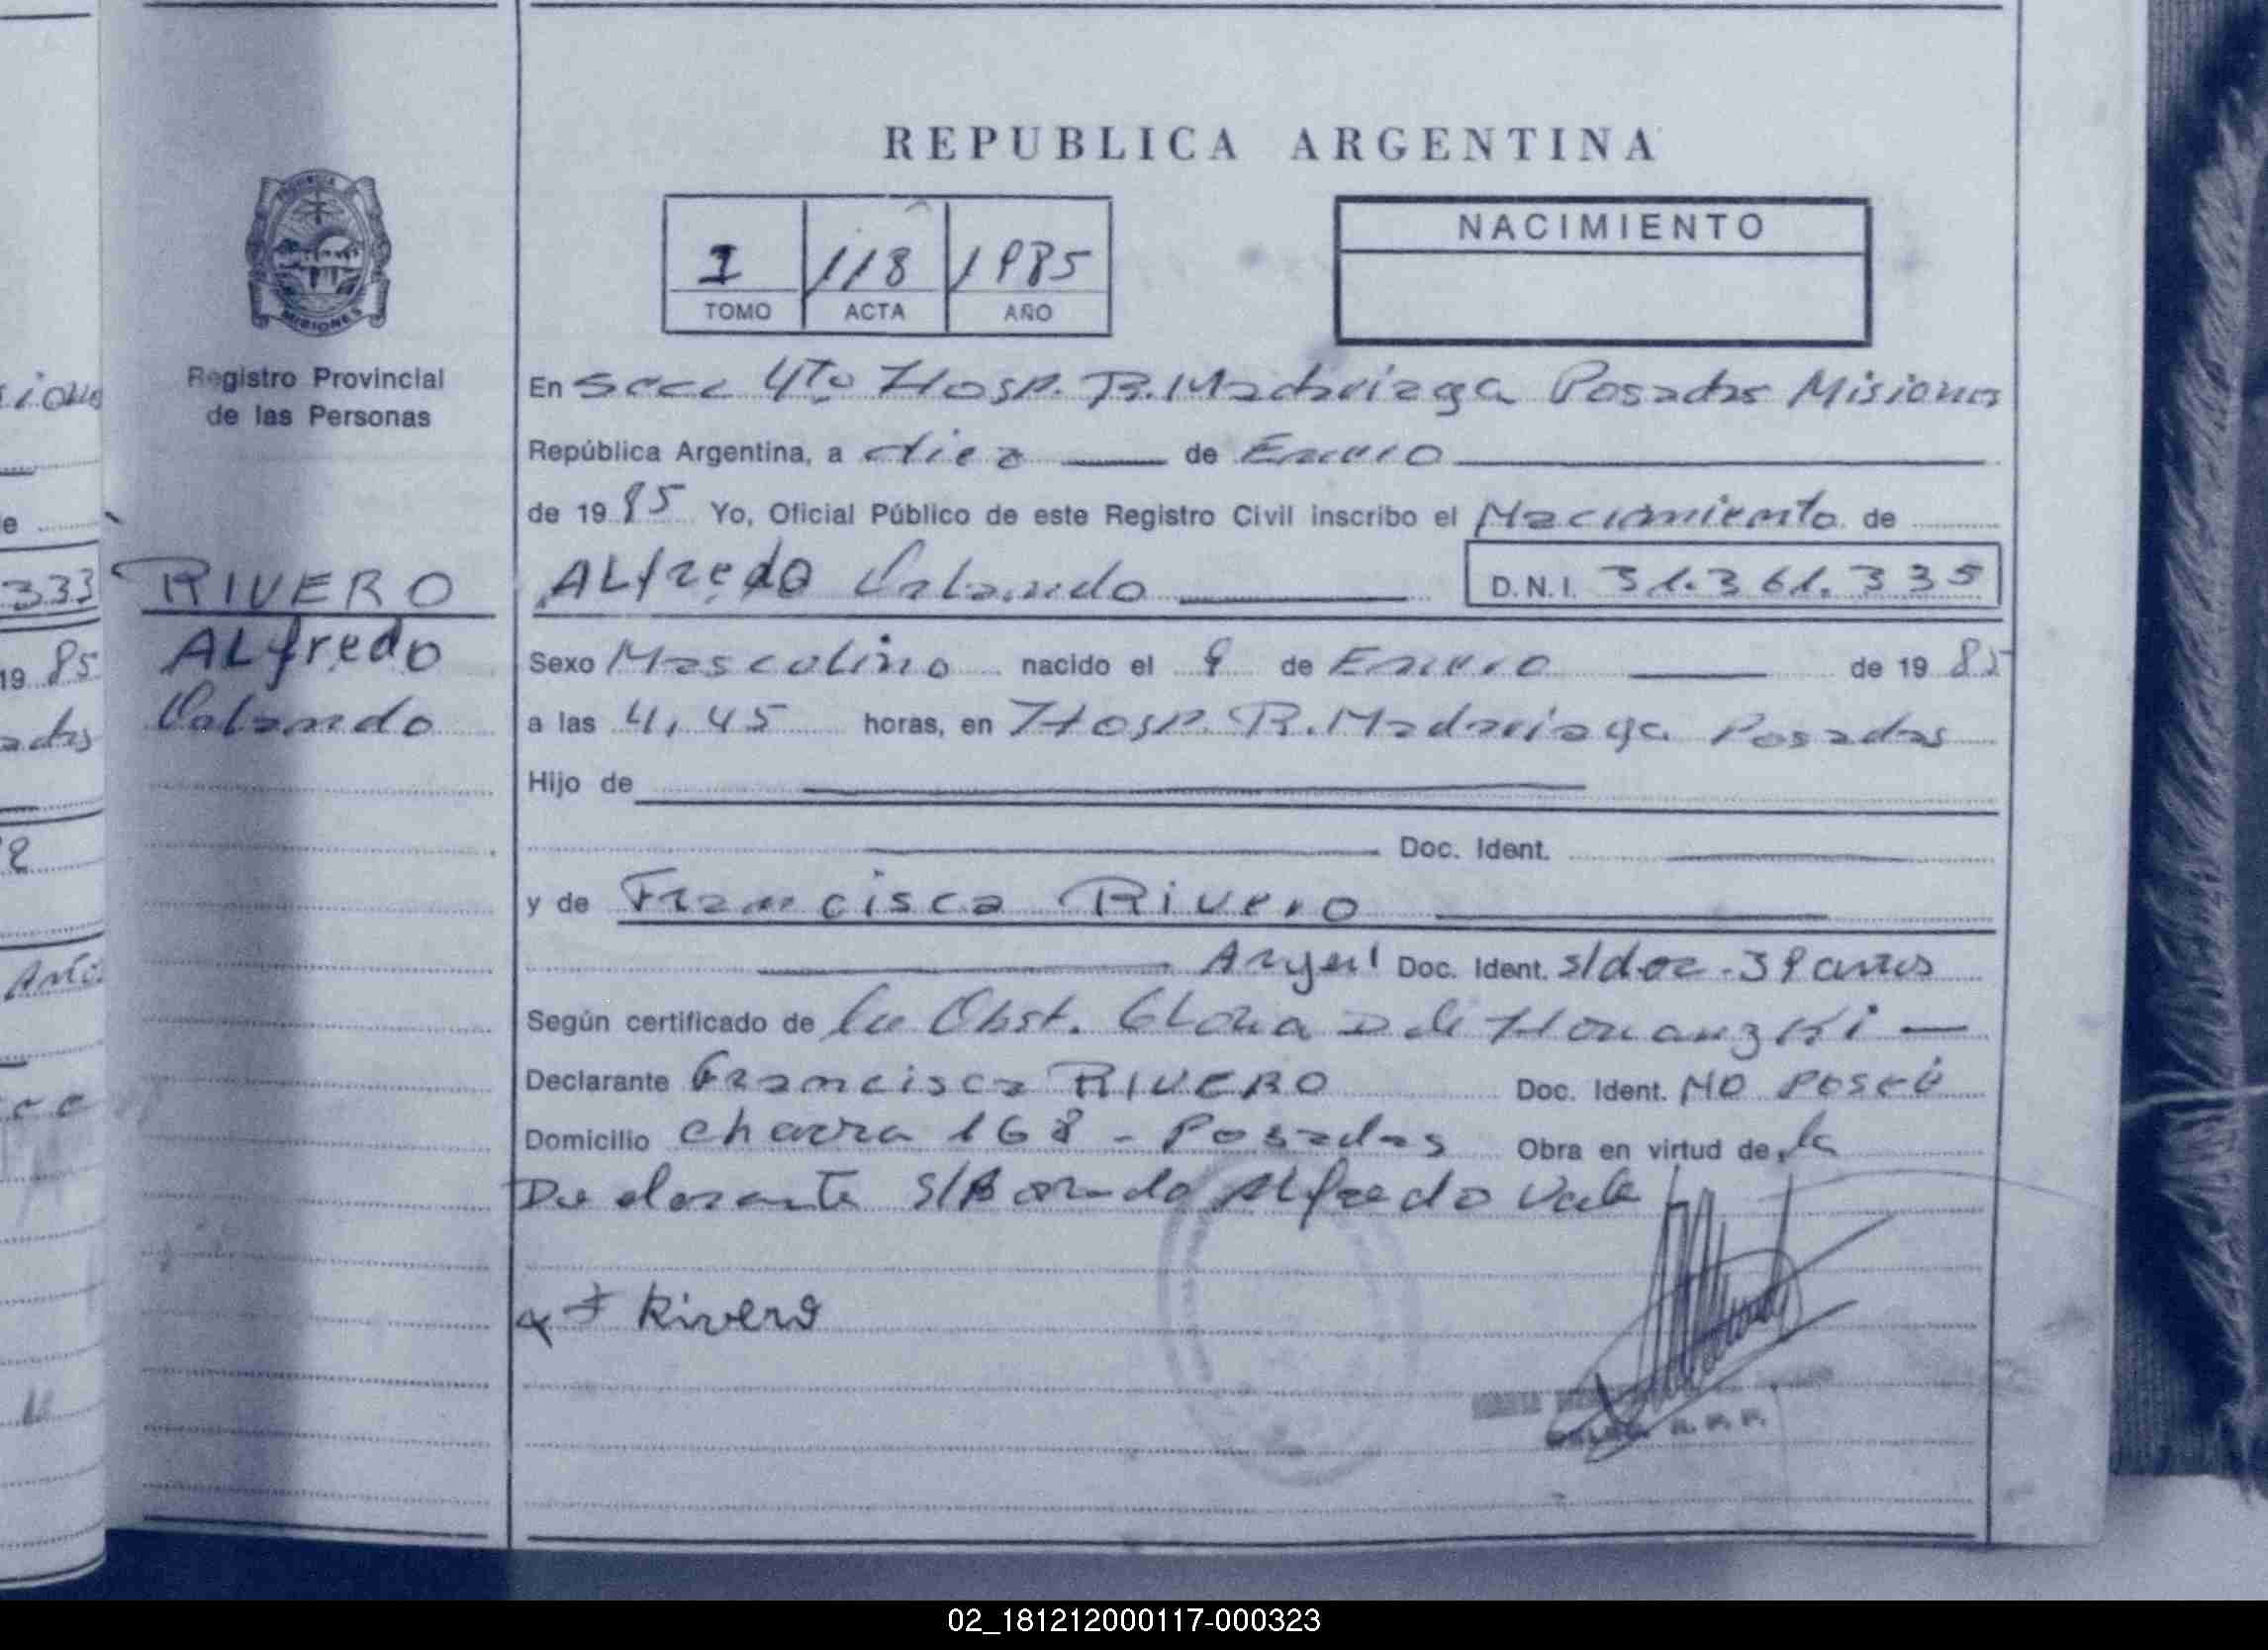 REPUBLICA ARGENTINA
PROVINCIA
MISIONES
Registro Provincial
de las Personas
I 118 1985
TOMO ACTA AÑO
NACIMIENTO
En Secc 4to Hosp. R. Madariaga Posadas Misiones
República Argentina, a diez de Enero
de 1985 Yo, Oficial Público de este Registro Civil inscribo el Nacimiento de
RIVERO
ALfredo
Orlando
ALfredo Orlando D.N.I. 31.361.335
Sexo Masculino nacido el 9 de Enero de 1985
a las 4,45 horas, en Hosp. R. Madariaga Posadas
Hijo de
Doc. Ident.
y de Francisca Rivero
Argen Doc. Ident. s/doc - 39 anos
Según certificado de la Obst. Gloria D de
Declarante Francisca RIVERO Doc. Ident. NO Posee
Domicilio chacra 168 - Posadas Obra en virtud de la
Declarante S/Borrado Alfredo Vale
F Rivero
333
1985